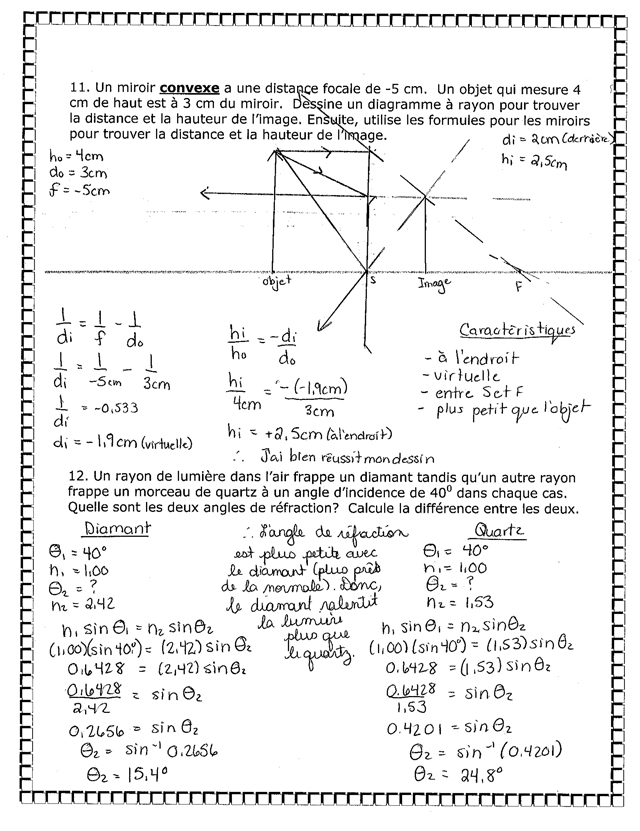 11. Un miroir convexe a une distance focale de -5 cm. Un objet qui mesure 4
cm de haut est à 3 cm du miroir. Dessine un diagramme à rayon pour trouver
la distance et la hauteur de l'image. Ensuite, utilise les formules pour les miroirs
pour trouver la distance et la hauteur de l'image.
di = 2cm (derrière)
hi = 2,5cm
ho = 4cm
do = 3cm
f = -5cm
objet
S
Image
F
1/di = 1/f - 1/do
1/di = 1/-5cm - 1/3cm
1/di = -0,533
di = -1,9cm (virtuelle)
hi/ho = -di/do
hi/4cm = -(-1,9cm)/3cm
hi = +2,5cm (à l'endroit)
∴ J'ai bien réussit mon dessin
Caractèristiques
- à l'endroit
- virtuelle
- entre S et F
- plus petit que l'objet
12. Un rayon de lumière dans l'air frappe un diamant tandis qu'un autre rayon
frappe un morceau de quartz à un angle d'incidence de 40⁰ dans chaque cas.
Quelle sont les deux angles de réfraction? Calcule la différence entre les deux.
Diamant
θ₁ = 40°
n₁ = 1,00
θ₂ = ?
n₂ = 2,42
n₁ sin θ₁ = n₂ sin θ₂
(1,00)(sin 40°) = (2,42) sin θ₂
0,6428 = (2,42) sin θ₂
0,6428/2,42 = sin θ₂
0,2656 = sin θ₂
θ₂ = sin⁻¹ 0,2656
θ₂ = 15,4°
∴ L'angle de réfaction
est plus petite avec
le diamant (plus près
de la normale). Donc,
le diamant ralentit
la lumière
plus que
le quartz.
Quartz
θ₁ = 40°
n₁ = 1,00
θ₂ = ?
n₂ = 1,53
n₁ sin θ₁ = n₂ sin θ₂
(1,00)(sin 40°) = (1,53) sin θ₂
0.6428 = (1,53) sin θ₂
0.6428/1,53 = sin θ₂
0.4201 = sin θ₂
θ₂ = sin⁻¹ (0,4201)
θ₂ = 24,8°